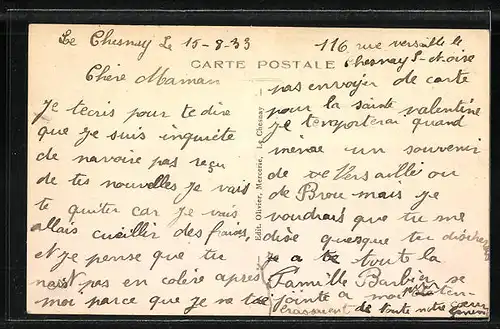 Le Chesnay Le 15-8-33
116 rue versaille le
Chesnay S-N-oise
CARTE POSTALE
Chère Maman
Je tecris pour te dire
que je suis inquiète
de navoire pas reçu
de tes nouvelles je vais
te quiter car je vais
allais cueillir des frais
et je pense que tu
nes pas en colère après
moi parce que je na te
Edit. Olivier, Mercerie, Le Chesnay
pas envoyer de carte
pour la sainte valentine
je te raporterai quand
même un souvenir
de versailli ou
de Brou mais je
voudrais que tu me
dise quesque tu
je a te tout la
Famille Barbier se
jointe a moi
de toute notre coeur